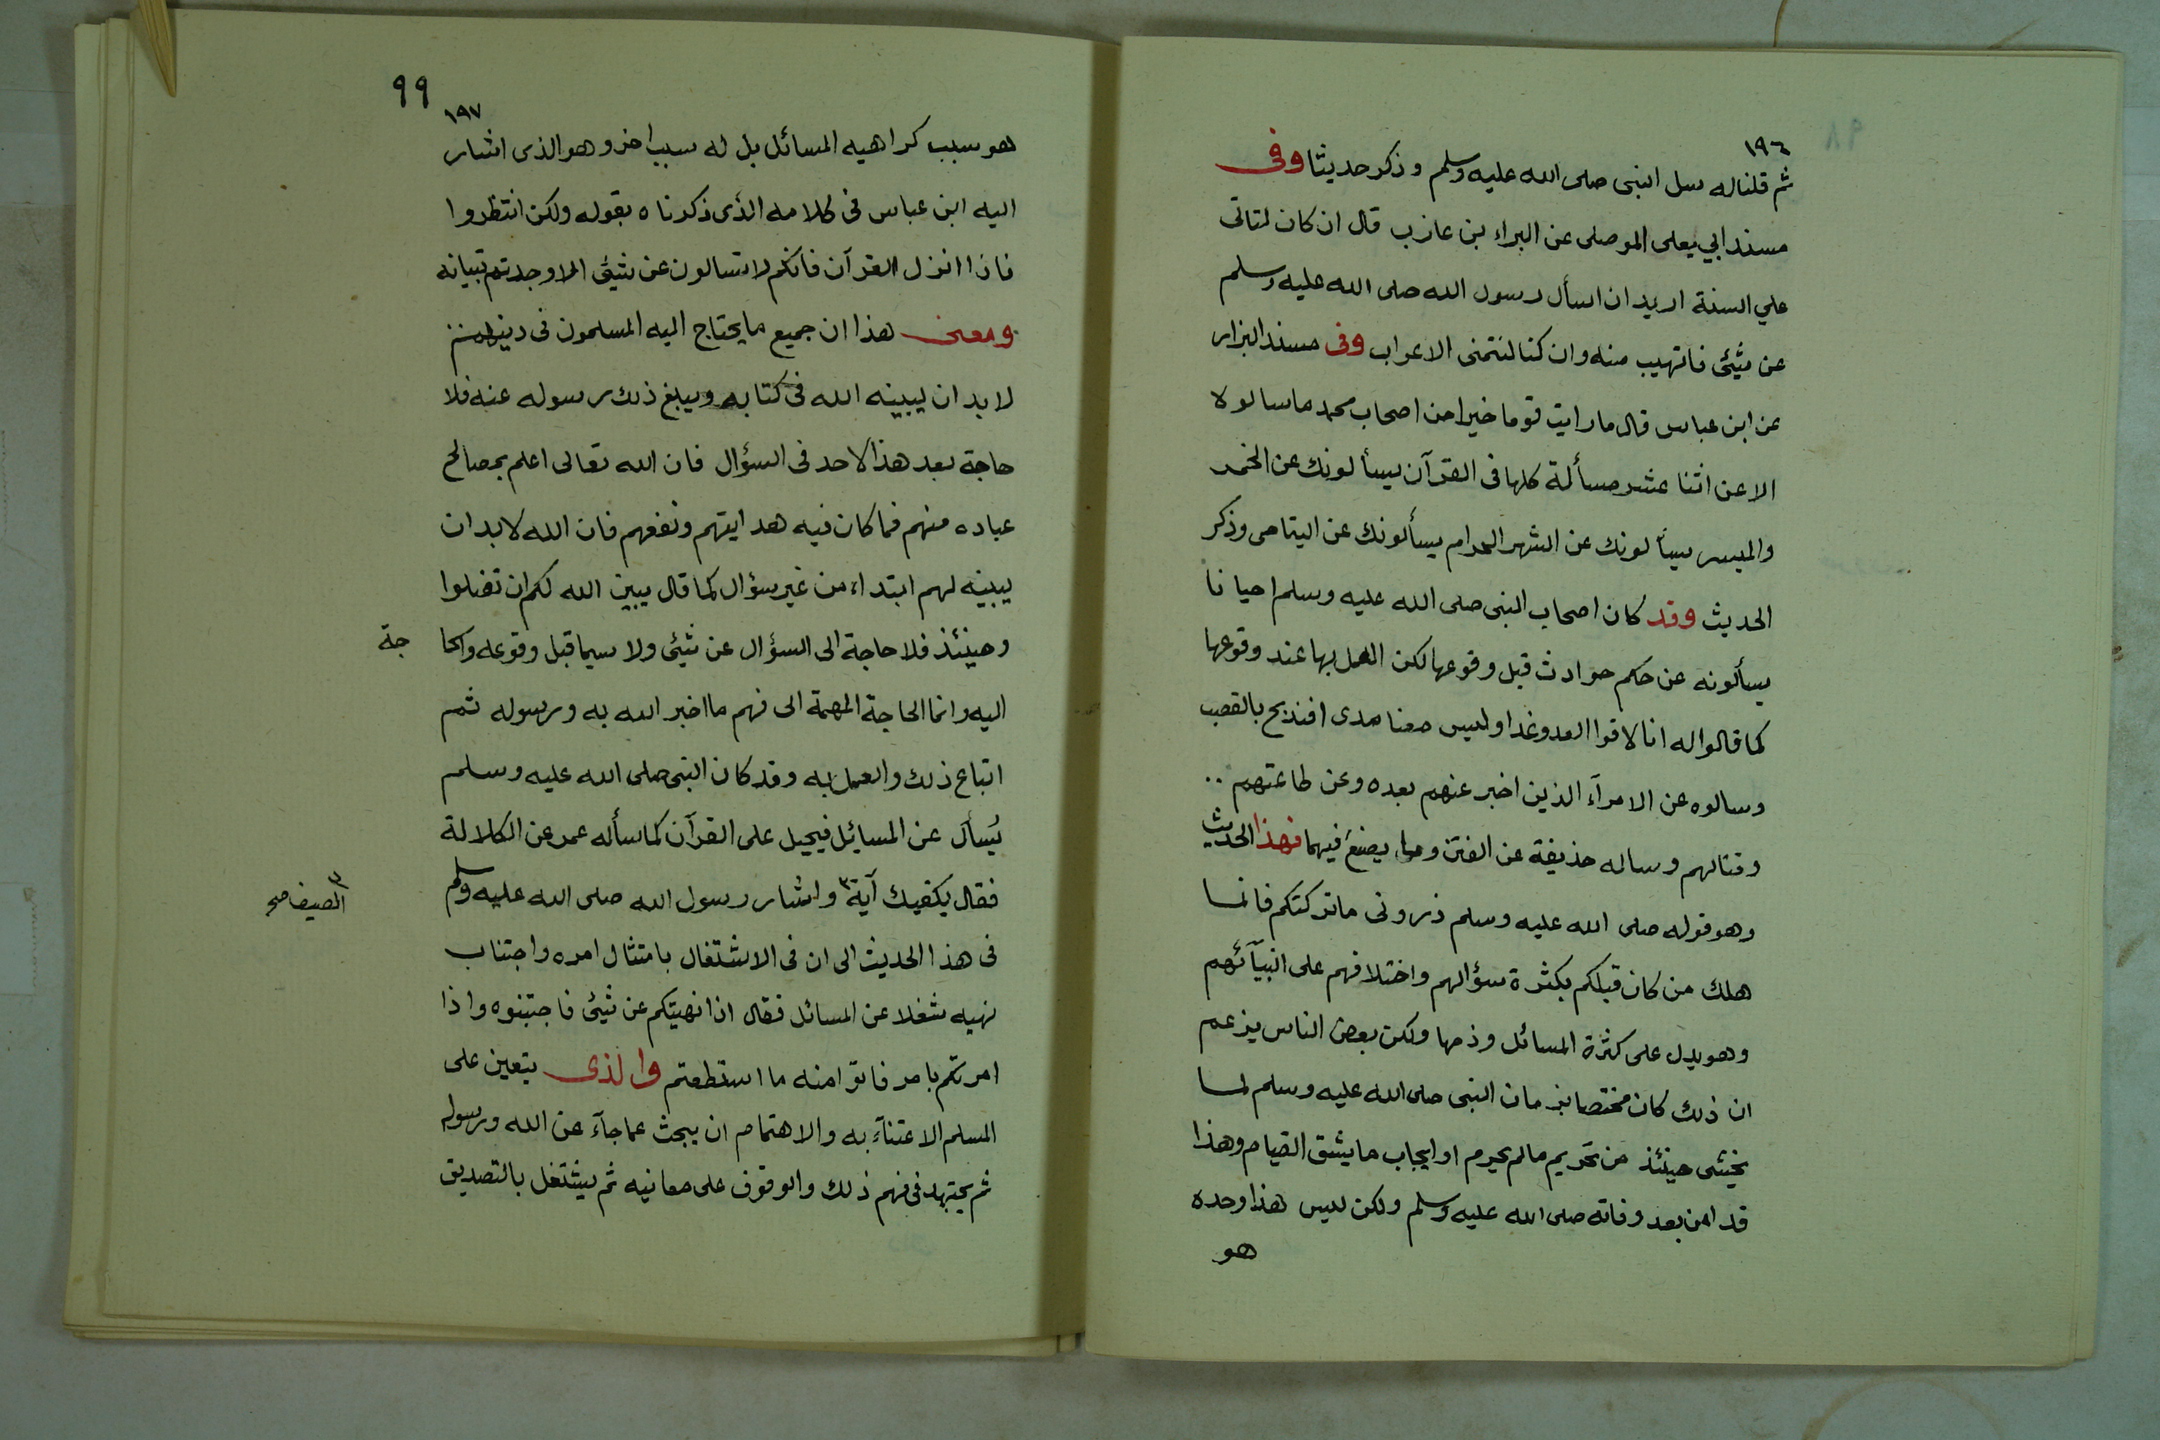 ١٩٦
ثم قلنا له سل النبى صلى الله عليه وسلم وذكر حديثا وفى
مسند ابي يعلى الموصلى عن البراء بن عازب قال ان كان لتاتى
علي السنة اريد ان اسأل رسول الله صلى الله عليه وسلم
عن شيئ فاتهيب منه وان كنا لنتمنى الاعراب وفى مسند البزار
عن ابن عباس قال ما رايت قوما خيرا من اصحاب محمد ما سالولا
الا عن اثنا عشر مسألة كلها فى القرآن يسألونك عن الخمر
والميسر يسألونك عن الشهر الحرام يسألونك عن اليتامى وذكر
الحديث وقد كان اصحاب النبى صلى الله عليه وسلم احيانا
يسألونه عن حكم حوادث قبل وقوعها لكن العمل بها عند وقوعها
كما قالوا له انا لاقوا العدو غدا وليس معنا مدى افنذبح بالقصب
وسالوه عن الامرآء الذين اخبر عنهم بعده وعن طاعتهم
وقتالهم وساله حذيفة عن الفتن وما يصنع فيهما فهذا الحديث
وهو قوله صلى الله عليه وسلم ذرونى ما تركتكم فانما
هلك من كان قبلكم بكثرة سؤالهم واختلافهم على انبيآئهم
وهو يدل على كثرة المسائل وذمها ولكن بعض الناس يزعم
ان ذلك كان مختصا بزمان النبى صلى الله عليه وسلم لما
يخشى حينئذ من تحريم ما لم يحرم او ايجاب ما يشق القيام وهذا
قد امن بعد وفاته صلى الله عليه وسلم ولكن ليس هذا وحده
هو
٩٩
١٩٧
هو سبب كراهيه المسائل بل له سبب اخر وهو الذى اشار
اليه ابن عباس فى كلامه الذى ذكرناه بقوله ولكن انتظروا
فاذا انزل القرآن فانكم لا تسالون عن شيئى الا وجدتم تبيانه
ومعنى هذا ان جميع ما يحتاج اليه المسلمون فى دينهم
لا بد ان يبينه الله فى كتابه ويبلغ ذلك رسوله عنه فلا
حاجة بعد هذا لاحد فى السؤال فان الله تعالى اعلم بمصالح
عباده منهم فما كان فيه هدايتهم ونفعهم فان الله لا بد ان
يبينه لهم ابتداء من غير سؤال كما قال يبين الله لكم ان تضلوا
وحينئذ فلا حاجة الى السؤال عن شيئى ولا سيما قبل وقوعه والحا جة
اليه وانما الحاجة المهمة الى فهم ما اخبر الله به ورسوله ثم
اتباع ذلك والعمل به وقد كان النبى صلى الله عليه وسلم
يُسأل عن المسايل فيحيل على القرآن كما سأله عمر عن الكلالة
فقال يكفيك آية واشار رسول الله صلى الله عليه وسلم
الصيف صح
فى هذا الحديث الى ان فى الاشتغال بامتثال امره واجتناب
نهيه شغلا عن المسائل فقال اذا نهيتكم عن شيئى فاجتنبوه واذا
امرتكم بامر فاتوا منه ما استطعتم والذى يتعين على
المسلم الاعتنآء به والاهتمام ان يبحث عما جآء عن الله ورسوله
ثم يجتهد فى فهم ذلك والوقوف على معانيه ثم يشتغل بالتصديق